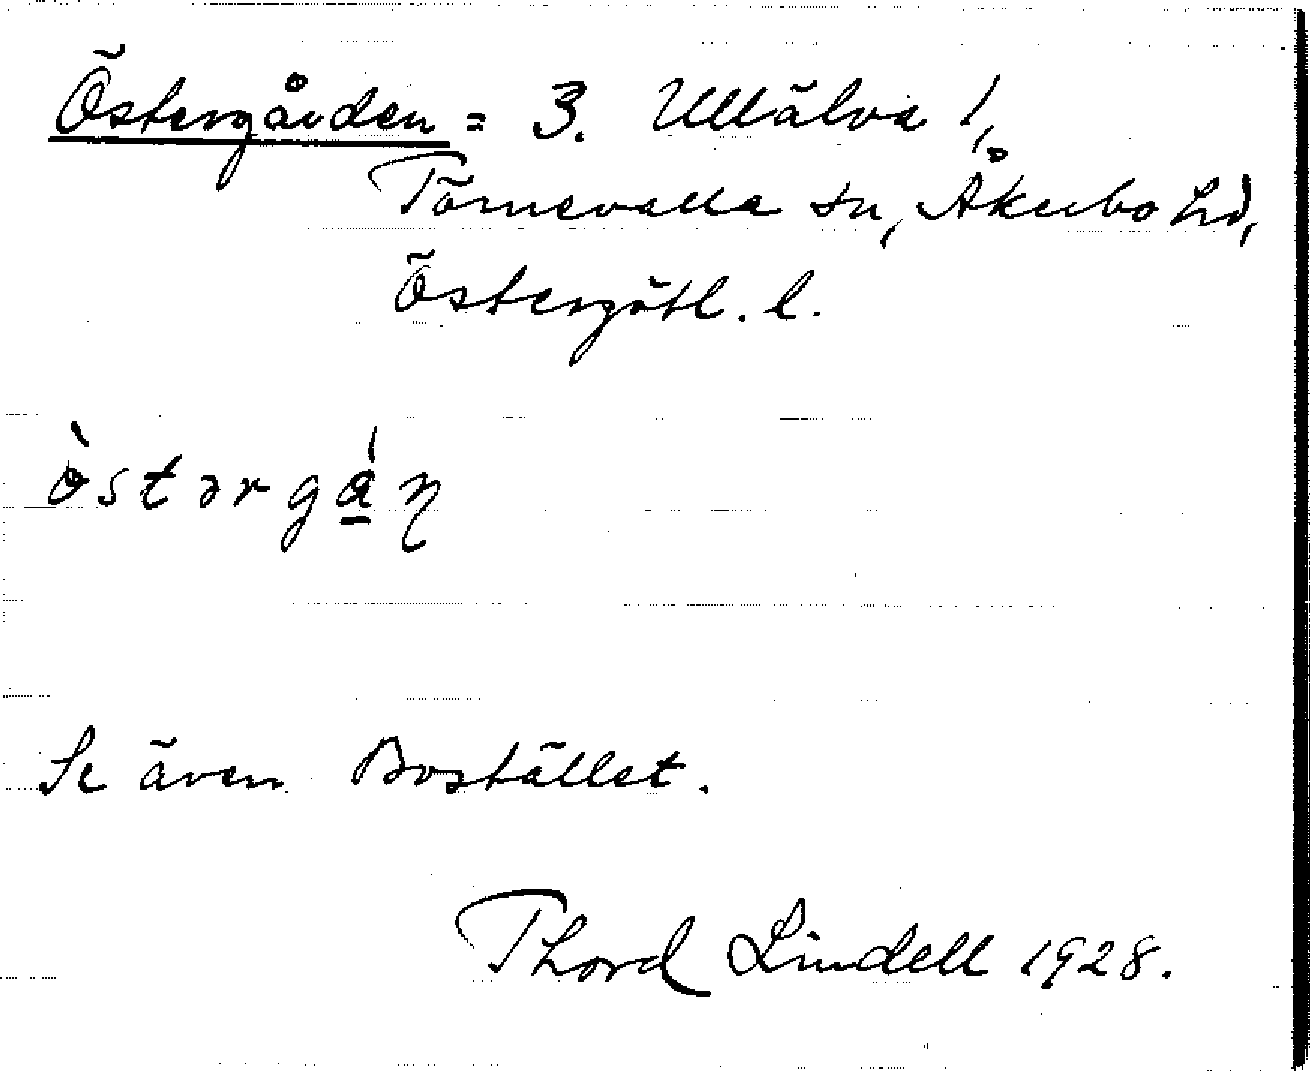 Östergården = 3. Ullälva 1,
Törnevalla sn, Åkerbo hd,
Östergötl. l.
östərgán
Se även Bostället.
Thord Lindell 1928.